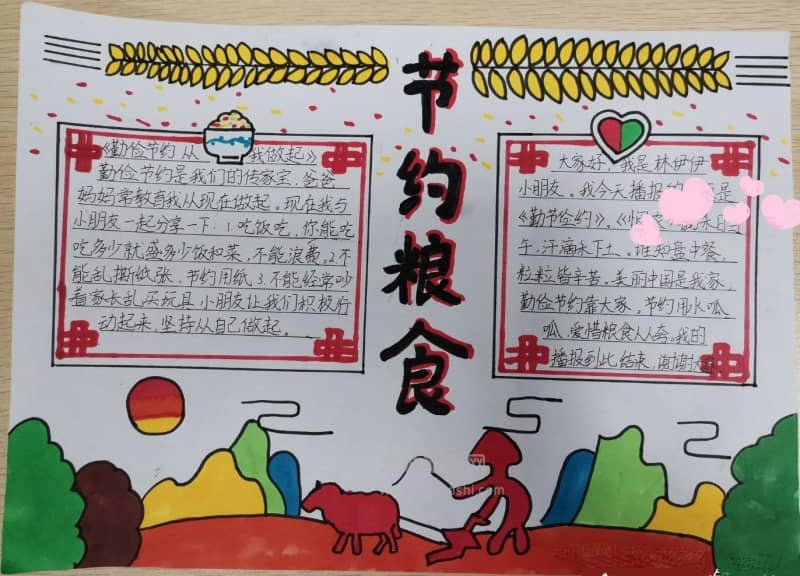 节约粮食
《勤俭节约从我做起》
勤俭节约是我们的传家宝,爸爸
妈妈常教育我从现在做起。现在我与
小朋友一起分享一下:1.吃饭吃,你能吃
吃多少就盛多少饭和菜,不能浪费,2.不
能乱撕纸张,节约用纸3.不能经常吵
着家长乱买玩具小朋友让我们积极行
动起来,坚持从自己做起。
大家好,我是林伊伊
小朋友。我今天播报的是
《勤节俭约》,《悯农》锄禾日当
午,汗滴禾下土。谁知盘中餐,
粒粒皆辛苦。美丽中国是我家,
勤俭节约靠大家。节约用水呱
呱,爱惜粮食人人夸。我的
播报到此结束,谢谢大